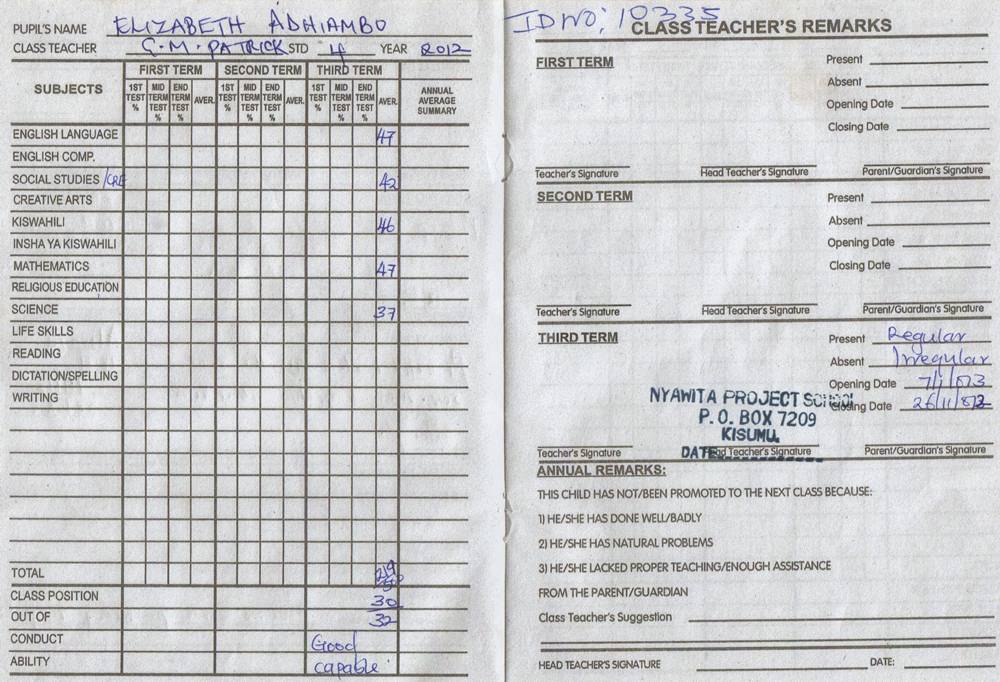 PUPIL'S NAME ELIZABETH ADHIAMBO
CLASS TEACHER G.M. PATRICK STD 4 YEAR 2012
SUBJECTS FIRST TERM SECOND TERM THIRD TERM ANNUAL AVERAGE SUMMARY
1ST TEST % MID TERM TEST % END TERM TEST % AVER. 1ST TEST % MID TERM TEST % END TERM TEST % AVER. 1ST TEST % MID TERM TEST % END TERM TEST % AVER.
ENGLISH LANGUAGE 47
ENGLISH COMP.
SOCIAL STUDIES /CRE 42
CREATIVE ARTS
KISWAHILI 46
INSHA YA KISWAHILI
MATHEMATICS 47
RELIGIOUS EDUCATION
SCIENCE 37
LIFE SKILLS
READING
DICTATION/SPELLING
WRITING
TOTAL 219
CLASS POSITION 30
OUT OF 32
CONDUCT Good
ABILITY capable
IDNO: 10335
CLASS TEACHER'S REMARKS
FIRST TERM
Present
Absent
Opening Date
Closing Date
Teacher's Signature Head Teacher's Signature Parent/Guardian's Signature
SECOND TERM
Present
Absent
Opening Date
Closing Date
Teacher's Signature Head Teacher's Signature Parent/Guardian's Signature
THIRD TERM
Present Regular
Absent Irregular
Opening Date
Closing Date
NYAWITA PROJECT SCHOOL
P.O. BOX 7209
KISUMU.
DATE
Teacher's Signature Head Teacher's Signature Parent/Guardian's Signature
ANNUAL REMARKS:
THIS CHILD HAS NOT/BEEN PROMOTED TO THE NEXT CLASS BECAUSE:
1) HE/SHE HAS DONE WELL/BADLY
2) HE/SHE HAS NATURAL PROBLEMS
3) HE/SHE LACKED PROPER TEACHING/ENOUGH ASSISTANCE
FROM THE PARENT/GUARDIAN
Class Teacher's Suggestion
HEAD TEACHER'S SIGNATURE DATE: